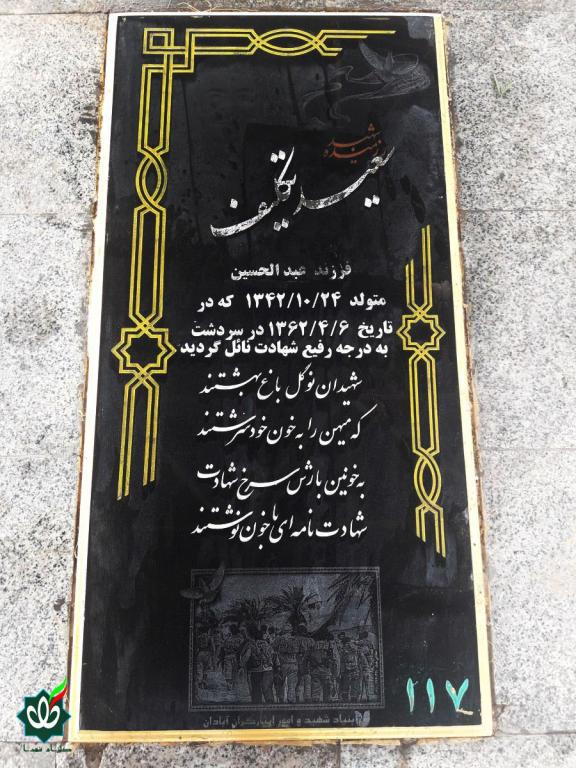 شهید
رزمنده
سعید
فرزند عبدالحسین
متولد ۱۳۴۲/۱۰/۲۴ که در
تاریخ ۱۳۶۲/۴/۶ در سردشت
به درجه رفیع شهادت نائل گردید
شهیدان نوگل باغ بهشتند
که میهن را به خون خود سرشتند
به خونین بارش سرخ شهادت
شهادت نامه ای با خون نوشتند
بنیاد شهید و امور ایثارگران آبادان
۱۱۷